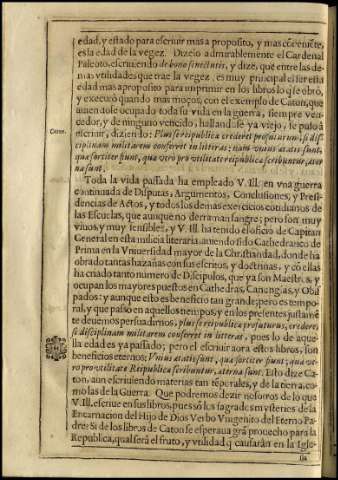 edad, y estado para escriuir mas a proposito, y mas cōueniēte,
es la edad de la vegez. Dizelo admirablemente el Cardenal
Paleoto, escriuiendo de bono senectutis, y dize, que entre las demas
vtilidades que trae la vegez, es muy principal el ser esta
edad mas aproposito para imprimir en los libros lo q̄ se obrò,
y executò quando mas moços, con el exemplo de Caton, que
auiendose ocupado toda su vida en la guerra, siempre vencedor,
y de ninguno vencido, hallandose ya viejo, se puso à
Caton.
escriuir, diziendo: Plus se reipublica crederet profuturum, si disciplinam
militarem conferret in litteras; nam vnius ætatis sunt,
quæ fortiter fiunt, quæ vero pro vtilitate reipublicæ scribuntur, æterna
sunt.
Toda la vida passada ha empleado V. Ill. en vna guerra
continuada de Disputas, Argumentos, Conclusiones, y Presidencias
de Actos, y todos los demas exercicios cotidianos de
las Escuelas, que aunque no derraman sangre; pero son muy
viuos, y muy sensibles, y V. Ill. ha tenido el oficio de Capitan
General en esta milicia literaria, auiendo sido Cathedratico de
Prima en la Vniuersidad mayor de la Christiandad, donde ha
obrado tantas hazañas con sus escritos, y doctrinas, y cō ellas
ha criado tanto numero de Discipulos, que ya son Maestros, y
ocupan los mayores puestos en Cathedras, Canongias, y Obispados:
y aunque esto es beneficio tan grande; pero es temporal,
y que passò en aquellos tiempos, y en los presentes justamēte
deuemos persuadirnos, plus se reipublica profuturus, crederet,
si disciplinam militarem conferret in litteras, pues lo de aquella
edad es ya passado; pero el escriuir aora estos libros, son
beneficios eternos: Vnius ætatis sunt, quæ fortiter fiunt; quæ vero
pro vtilitate Reipublicæ scribuntur, æterna sunt. Esto dize Caton,
aun escriuiendo materias tan tēporales, y de la tierra, como
las de la Guerra. Que podremos dezir nosotros de lo que
V. Ill. escriue en sus libros, pues sō los sagrados mysterios de la
Encarnacion del Hijo de Dios Verbo Vnigenito del Eterno Padre:
Si de los libros de Caton se esperaua grā prouecho para la
Republica, qual serà el fruto, y vtilidad q̄ causaràn en la Igle-